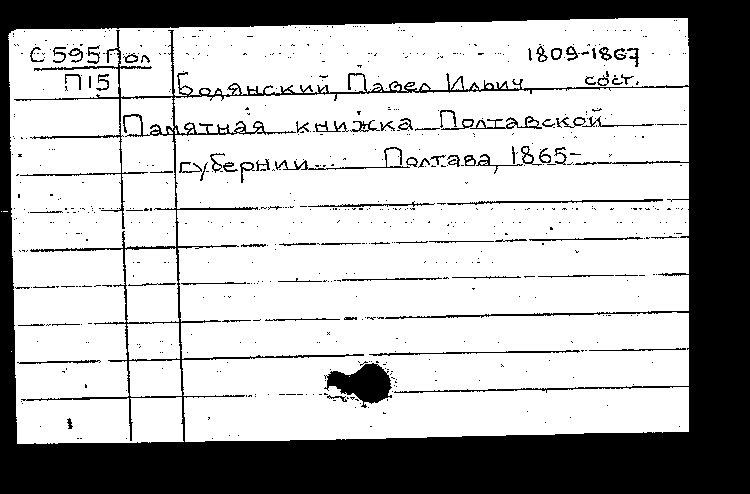 С595Пол 1809-1867
П15 Бодянский, Павел Ильич, сост.
Памятная книжка Полтавской
губернии... Полтава, 1865-